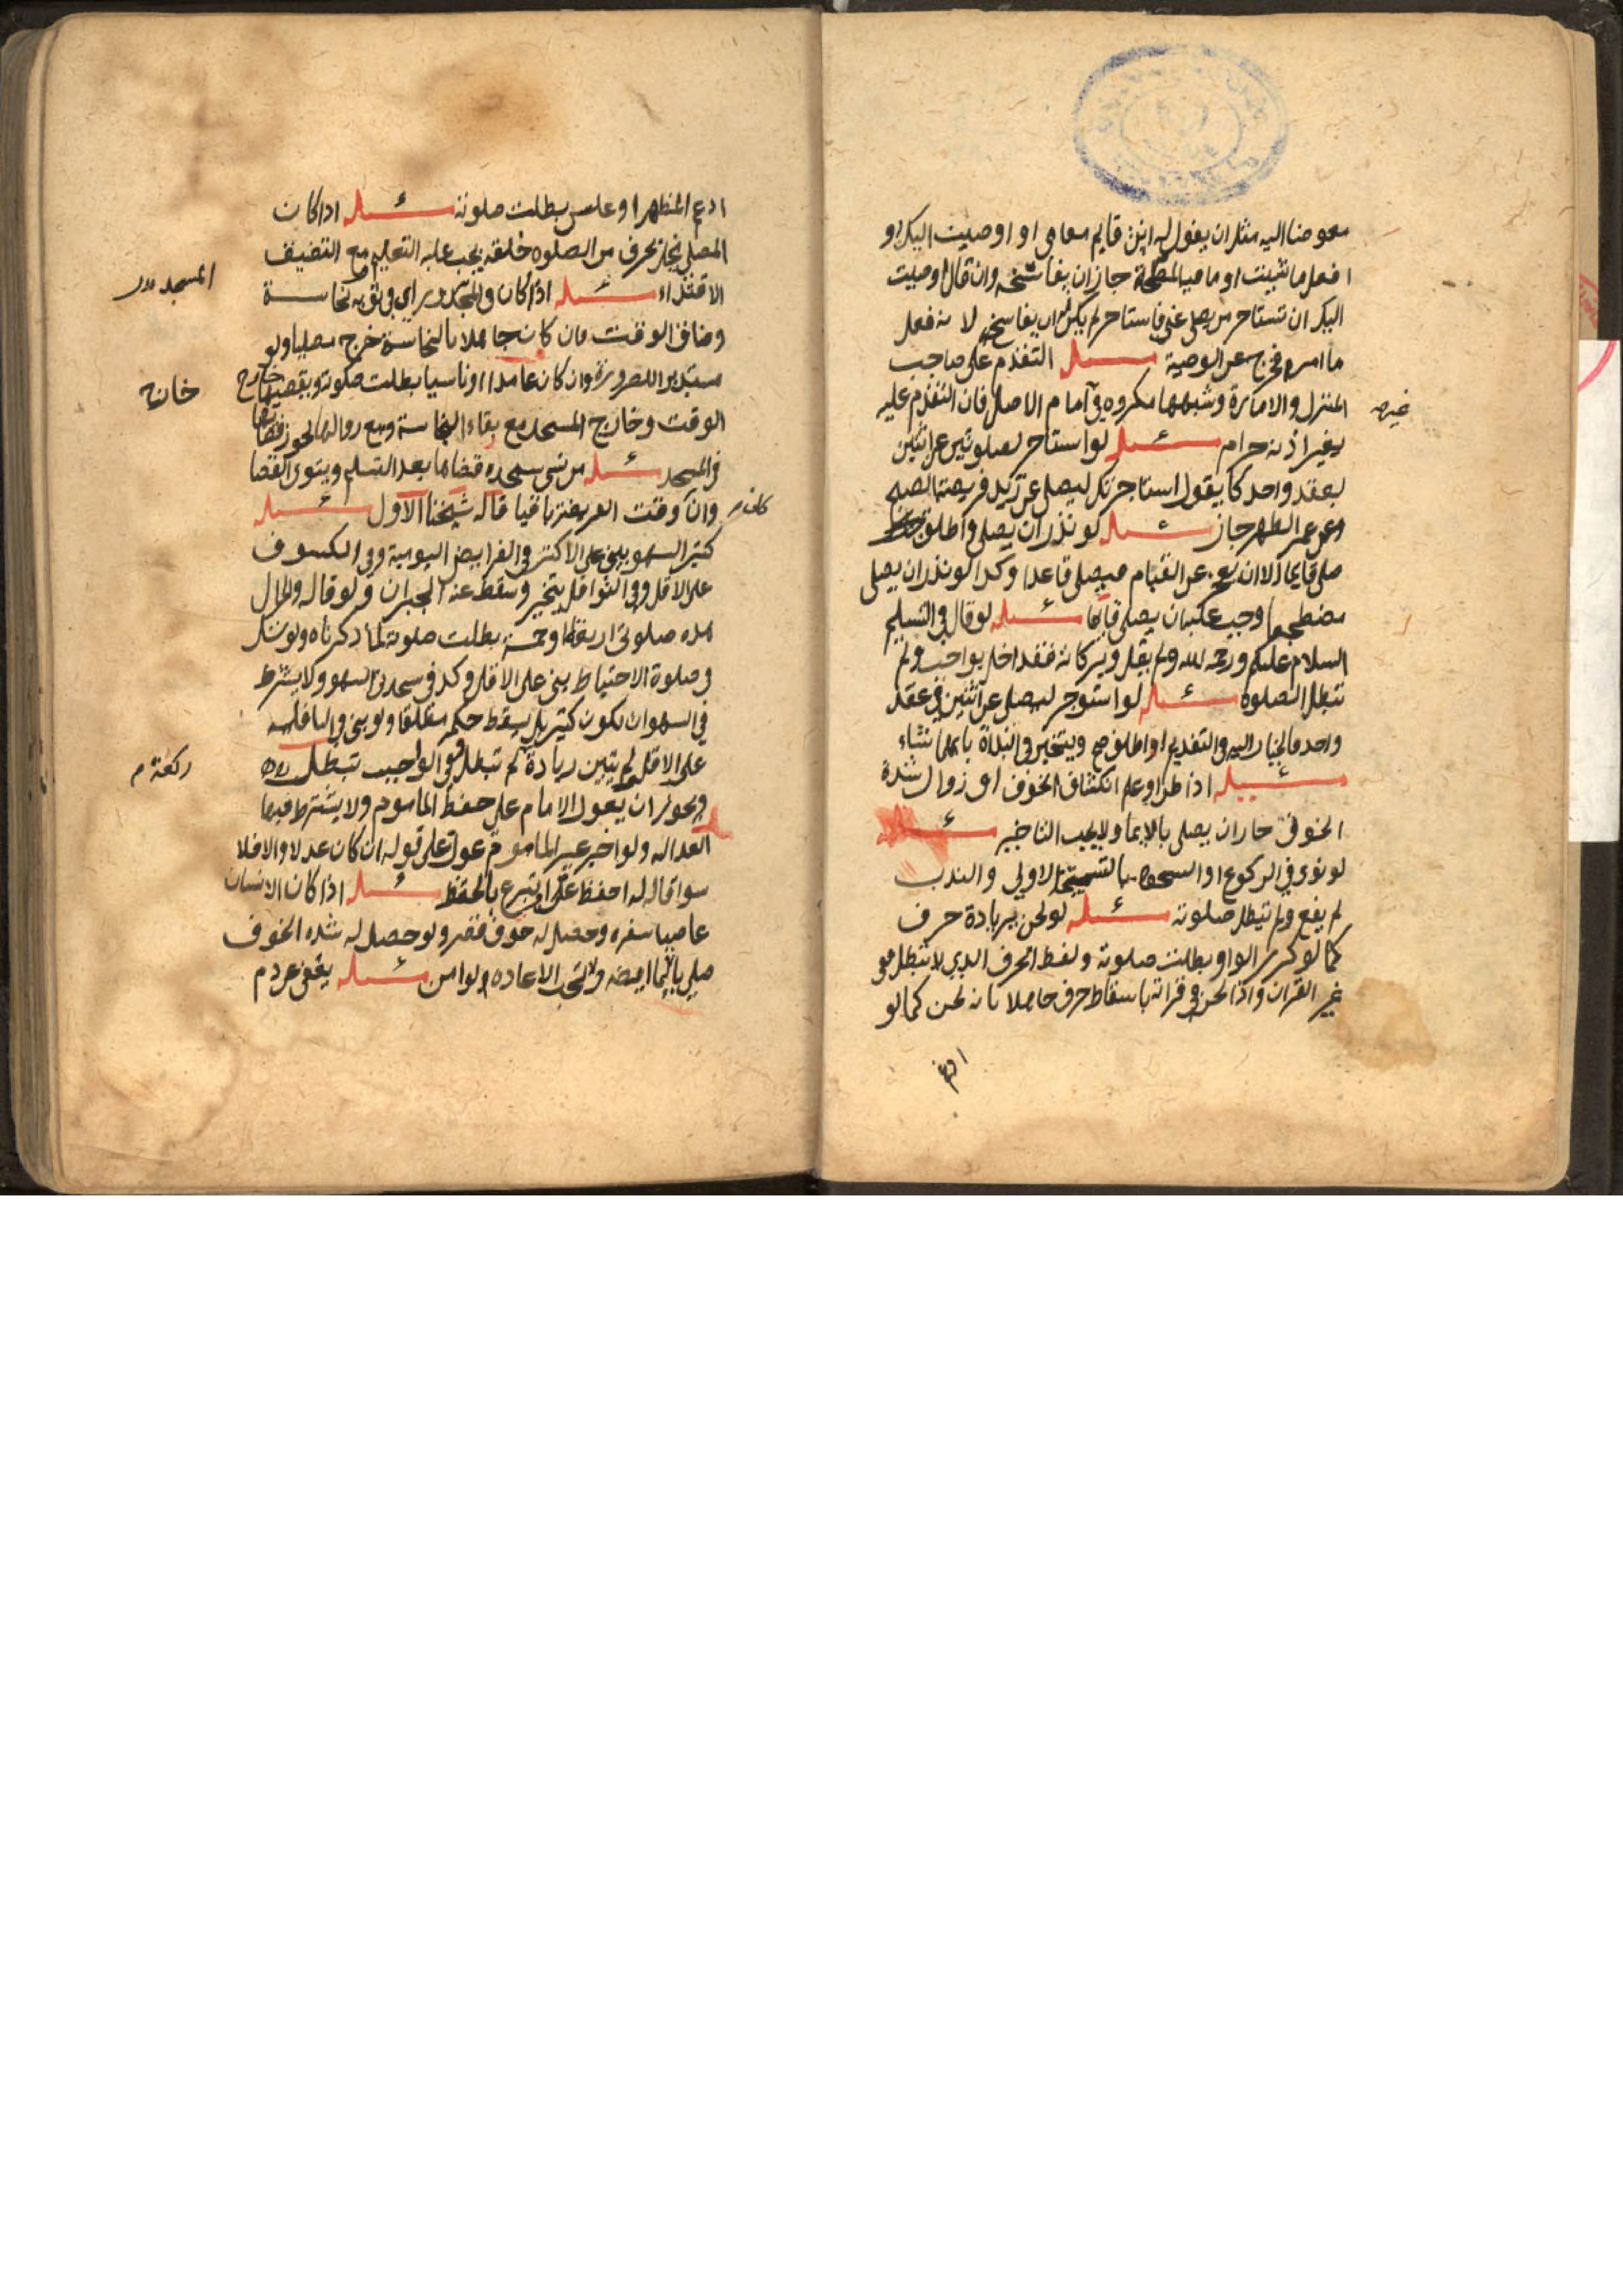 مفوضا اليه مثل ان يقول له انت قايم مقامي او اوصيت اليك او
افعل ما شيت او ما فيه المصلحة جاز ان يفاسخه وان قال اوصيت
اليك ان تستاجر من يصلي عني فاستاجر لم يكن له ان يفاسخه لانه فعل
ما امر به فخرج عن الوصية مسئله التقدم على صاحب
المنزل والامارة وشبهها مكروه في امام الاصل فان التقدم عليه
بغير اذنه حرام مسئله لو استاجر لصلوتين عن اثنين
بعقد واحد كما يقول استاجرتك ليصلي عن زيد فريضة الصبح
وعن عمر الظهر جاز مسئله لو نذر ان يصلي واطلق
صلى قايما الا ان يعجز عن القيام فيصلي قاعدا وكذا لو نذر ان يصلي
مضطجعا وجب عليه ان يصلي قايما مسئله لو قال في التسليم
السلام عليكم ورحمة الله ولم يقل وبركاته فقد اخل بواجب ولم
تبطل الصلوه مسئله لو استوجر ليصلي عن اثنين في عقد
واحد فالخيار اليه في التقديم او اطلق صح ويتخير في البداة بايهما شاء
مسئله اذا طرا وعلم انكشاف الخوف او زوال شدة
الخوف جاز ان يصلي بالايما ولا يجب التاخير مسئله
لو نوى في الركوع او السجود بالتسبيحة الاولى والندب
لم يقع ولم تبطل صلوته مسئله لو لحن بزيادة حرف
كما لو كرر الواو بطلت صلوته ولفظ الحرف الذي لا تبطل هو
غير القران واذا لحن في قراته باسقاط حرف جاهلا بانه لحن كما لو
ادغم
ادغم المظهر او عكس بطلت صلوته مسئله اذا كان
المصلي يخل بحرف من الصلوه خلقة يجب عليه التعليم ومع التضيق
الاقتداء مسئله اذا كان في المسجد وراى في ثوبه نجاسة
المسجد
وضاق الوقت فان كان جاهلا بالنجاسة خرج مصليا ولو
مستدبرا للضرورة وان كان عامدا او ناسيا بطلت صلوته ويقضيها خارج
الوقت وخارج المسجد مع بقاء النجاسة ومع زوالها يجوز قضائها
في المسجد مسئله من نسي سجدة قضاها بعد التسليم وينوي القضا
وان وقت الفريضة باقيا قاله شيخنا الاول مسئله
كان
كثير السهو يبني على الاكثر في الفرايض اليومية وفي الكسوف
على الاقل وفي النوافل يتخير وسقط عنه الجبران ولو قال والحال
هذه صلوتي اربعا او خمسة بطلت صلوته لما ذكرناه ولو شك
في صلوة الاحتياط يبني على الاقل وكذا في سجدتي السهو ولا يشترط
في السهو ان يكون كثير بل يسقط حكمه مطلقا ولو بنى في النافلة
على الاقل ثم تبين زيادة لم تبطل وفي الواجب تبطل
ركعة
ويجوز ان يعول الامام على حفظ الماموم ولا يشترط فيها
العداله ولو اخبر غير الماموم عول على قوله ان كان عدلا والا فلا
سوا قال له احفظ علي او تبرع بالحفظ مسئله اذا كان الانسان
عاصيا بسفره وحصل له خوف قصر ولو حصل له شدة الخوف
صلى بالايما ايضا ولا تجب الاعاده ولو امن مسئله يعفى عن دم